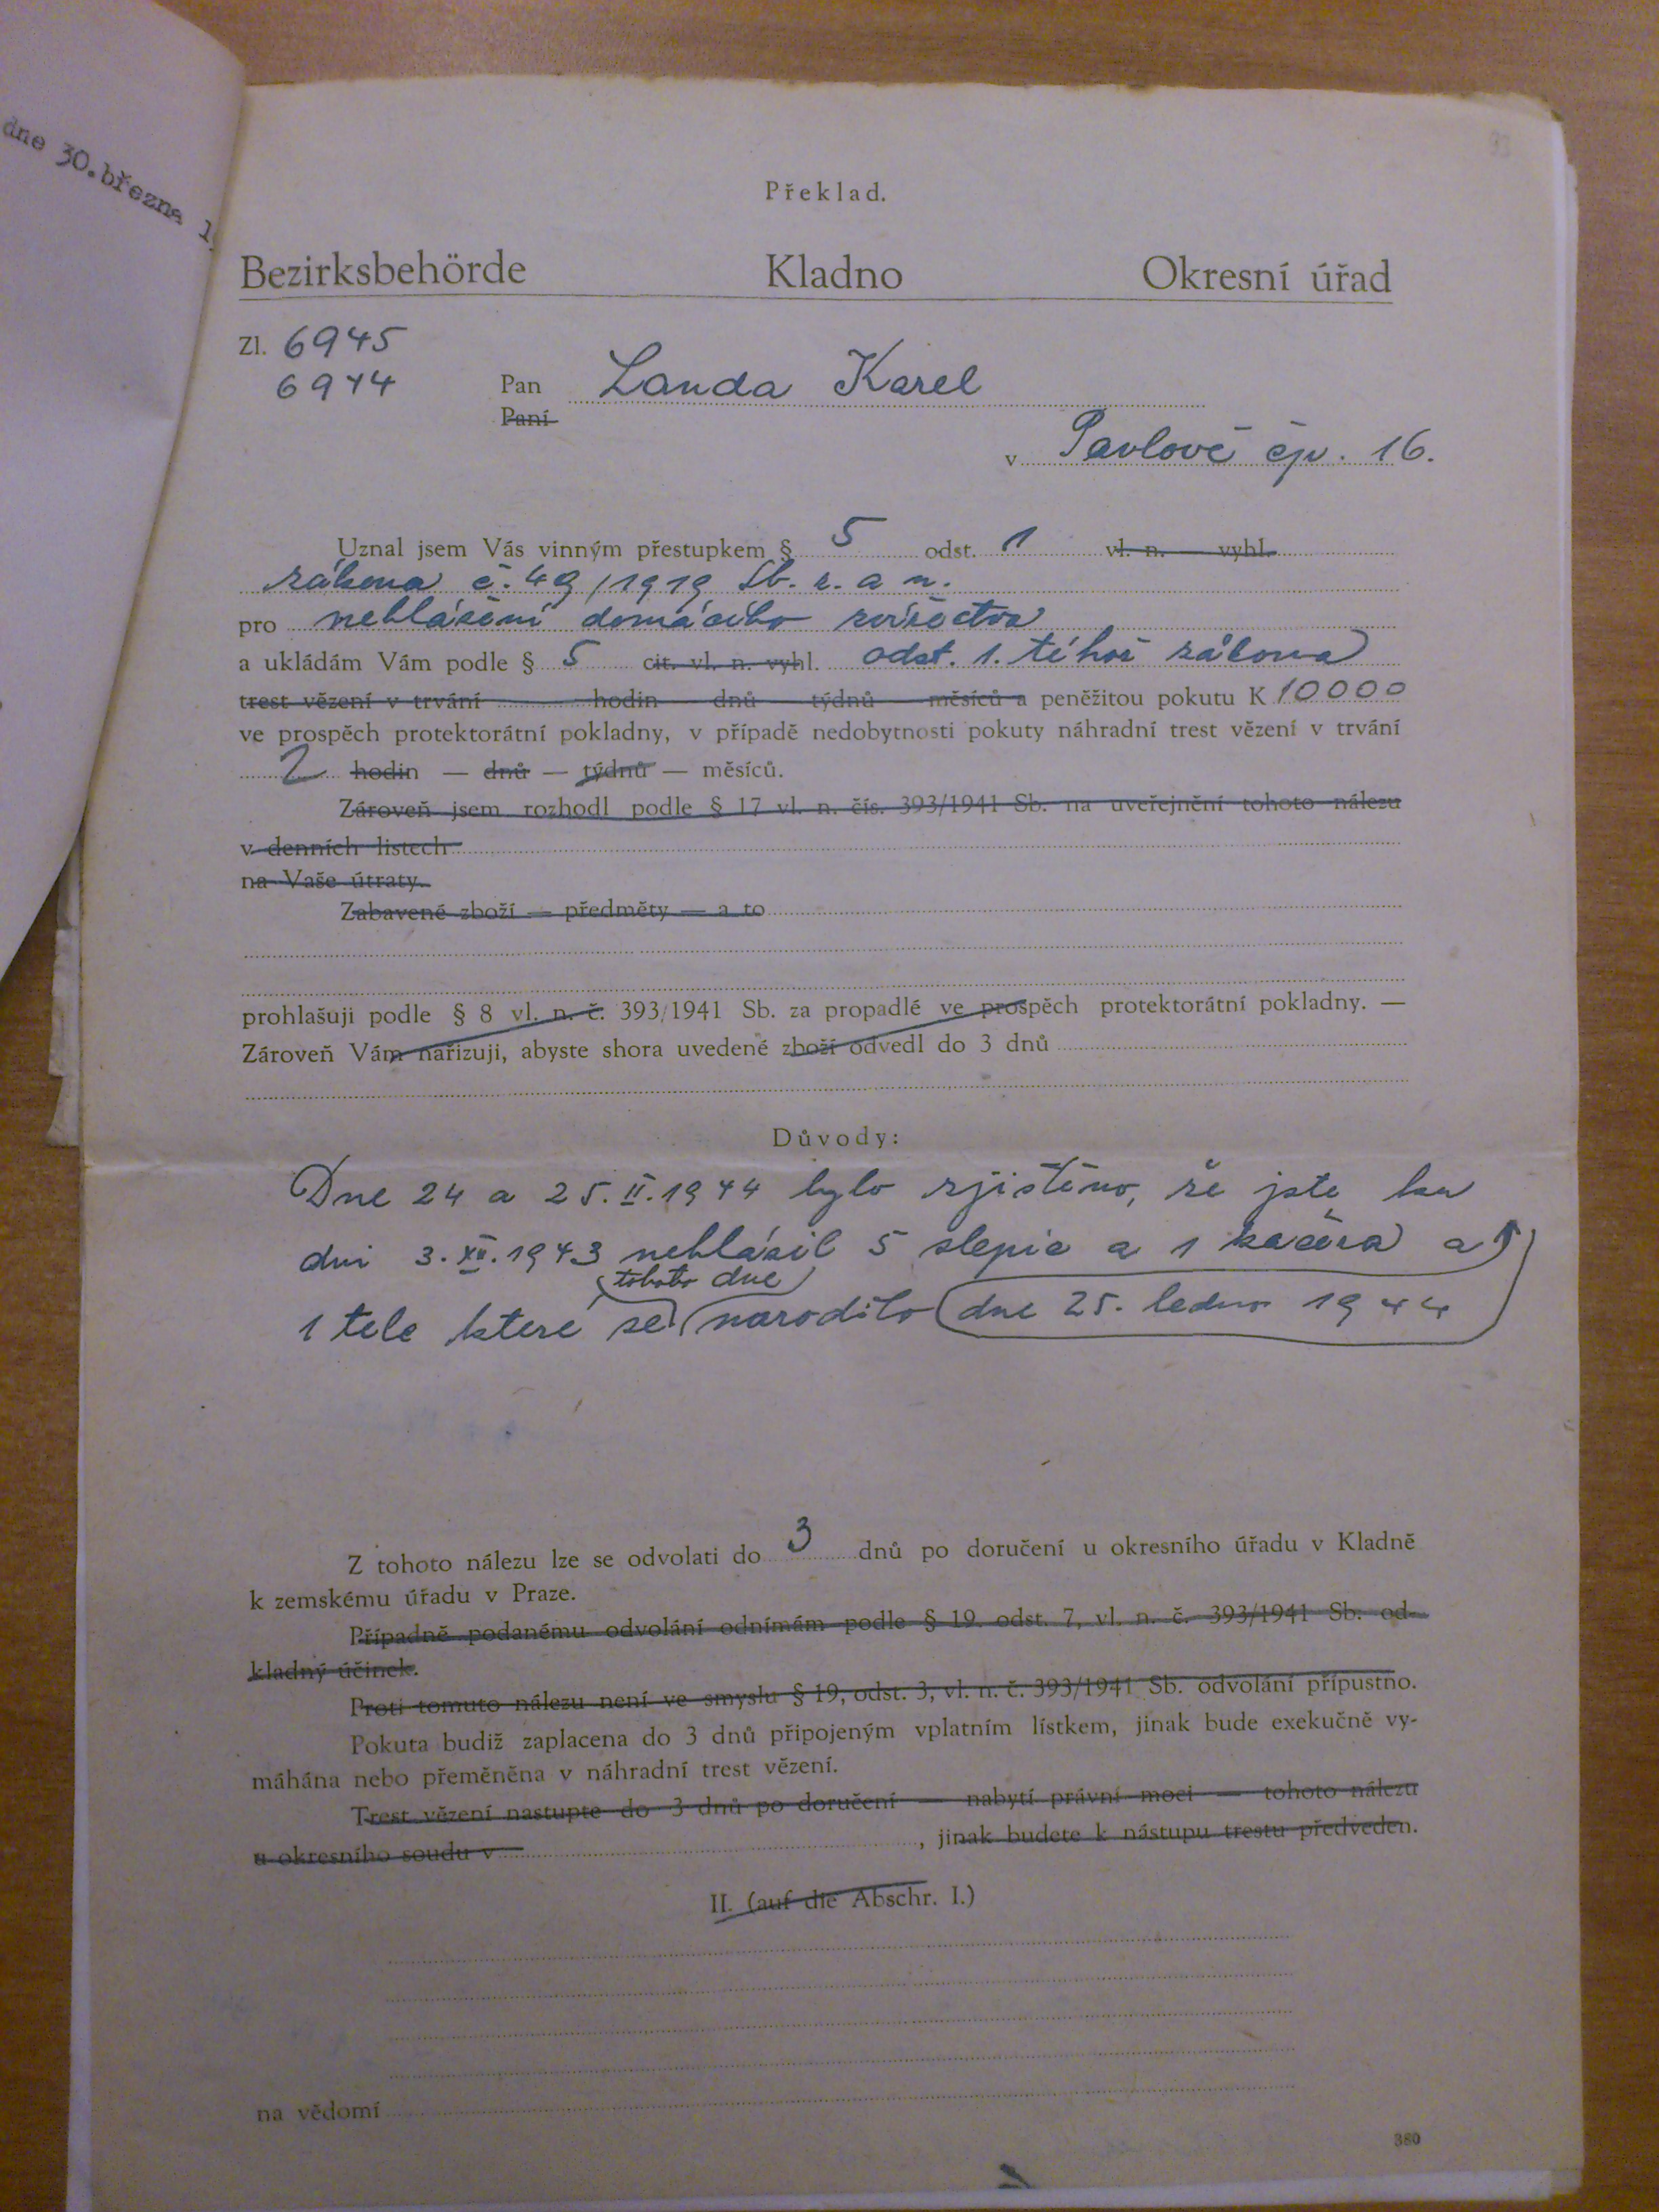 dne 30. března 1
33
Překlad.
Bezirksbehörde Kladno Okresní úřad
Zl. 6945
6944
Pan Landa Karel
Paní
v Pavlově čp. 16.
Uznal jsem Vás vinným přestupkem § 5 odst. 1 vl. n. — vyhl.
zákona č. 49/1919 Sb. z. a n.
pro nehlášení domácího zvířectva
a ukládám Vám podle § 5 cit. vl. n. vyhl. odst. 1. téhož zákona
trest vězení v trvání hodin dnů týdnů měsíců a peněžitou pokutu K 10000
ve prospěch protektorátní pokladny, v případě nedobytnosti pokuty náhradní trest vězení v trvání
2 hodin — dnů — týdnů — měsíců.
Zároveň jsem rozhodl podle § 17 vl. n. čís. 393/1941 Sb. na uveřejnění tohoto nálezu
v denních listech
na Vaše útraty.
Zabavené zboží — předměty — a to
prohlašuji podle § 8 vl. n. č. 393/1941 Sb. za propadlé ve prospěch protektorátní pokladny. —
Zároveň Vám nařizuji, abyste shora uvedené zboží odvedl do 3 dnů
Důvody:
Dne 24 a 25. II. 1944 bylo zjištěno, že jste ku
dni 3. XII. 1943 nehlásil 5 slepic a 1 kačera a
tohoto dne
1 tele které se narodilo dne 25. ledna 1944
Z tohoto nálezu lze se odvolati do 3 dnů po doručení u okresního úřadu v Kladně
k zemskému úřadu v Praze.
Případně podanému odvolání odnímám podle § 19. odst. 7, vl. n. č. 393/1941 Sb. od-
kladný účinek.
Proti tomuto nálezu není ve smyslu § 19, odst. 3, vl. n. č. 393/1941 Sb. odvolání přípustno.
Pokuta budiž zaplacena do 3 dnů připojeným vplatním lístkem, jinak bude exekučně vy-
máhána nebo přeměněna v náhradní trest vězení.
Trest vězení nastupte do 3 dnů po doručení — nabytí právní moci — tohoto nálezu
u okresního soudu v , jinak budete k nástupu trestu předveden.
II. (auf die Abschr. I.)
na vědomí
380